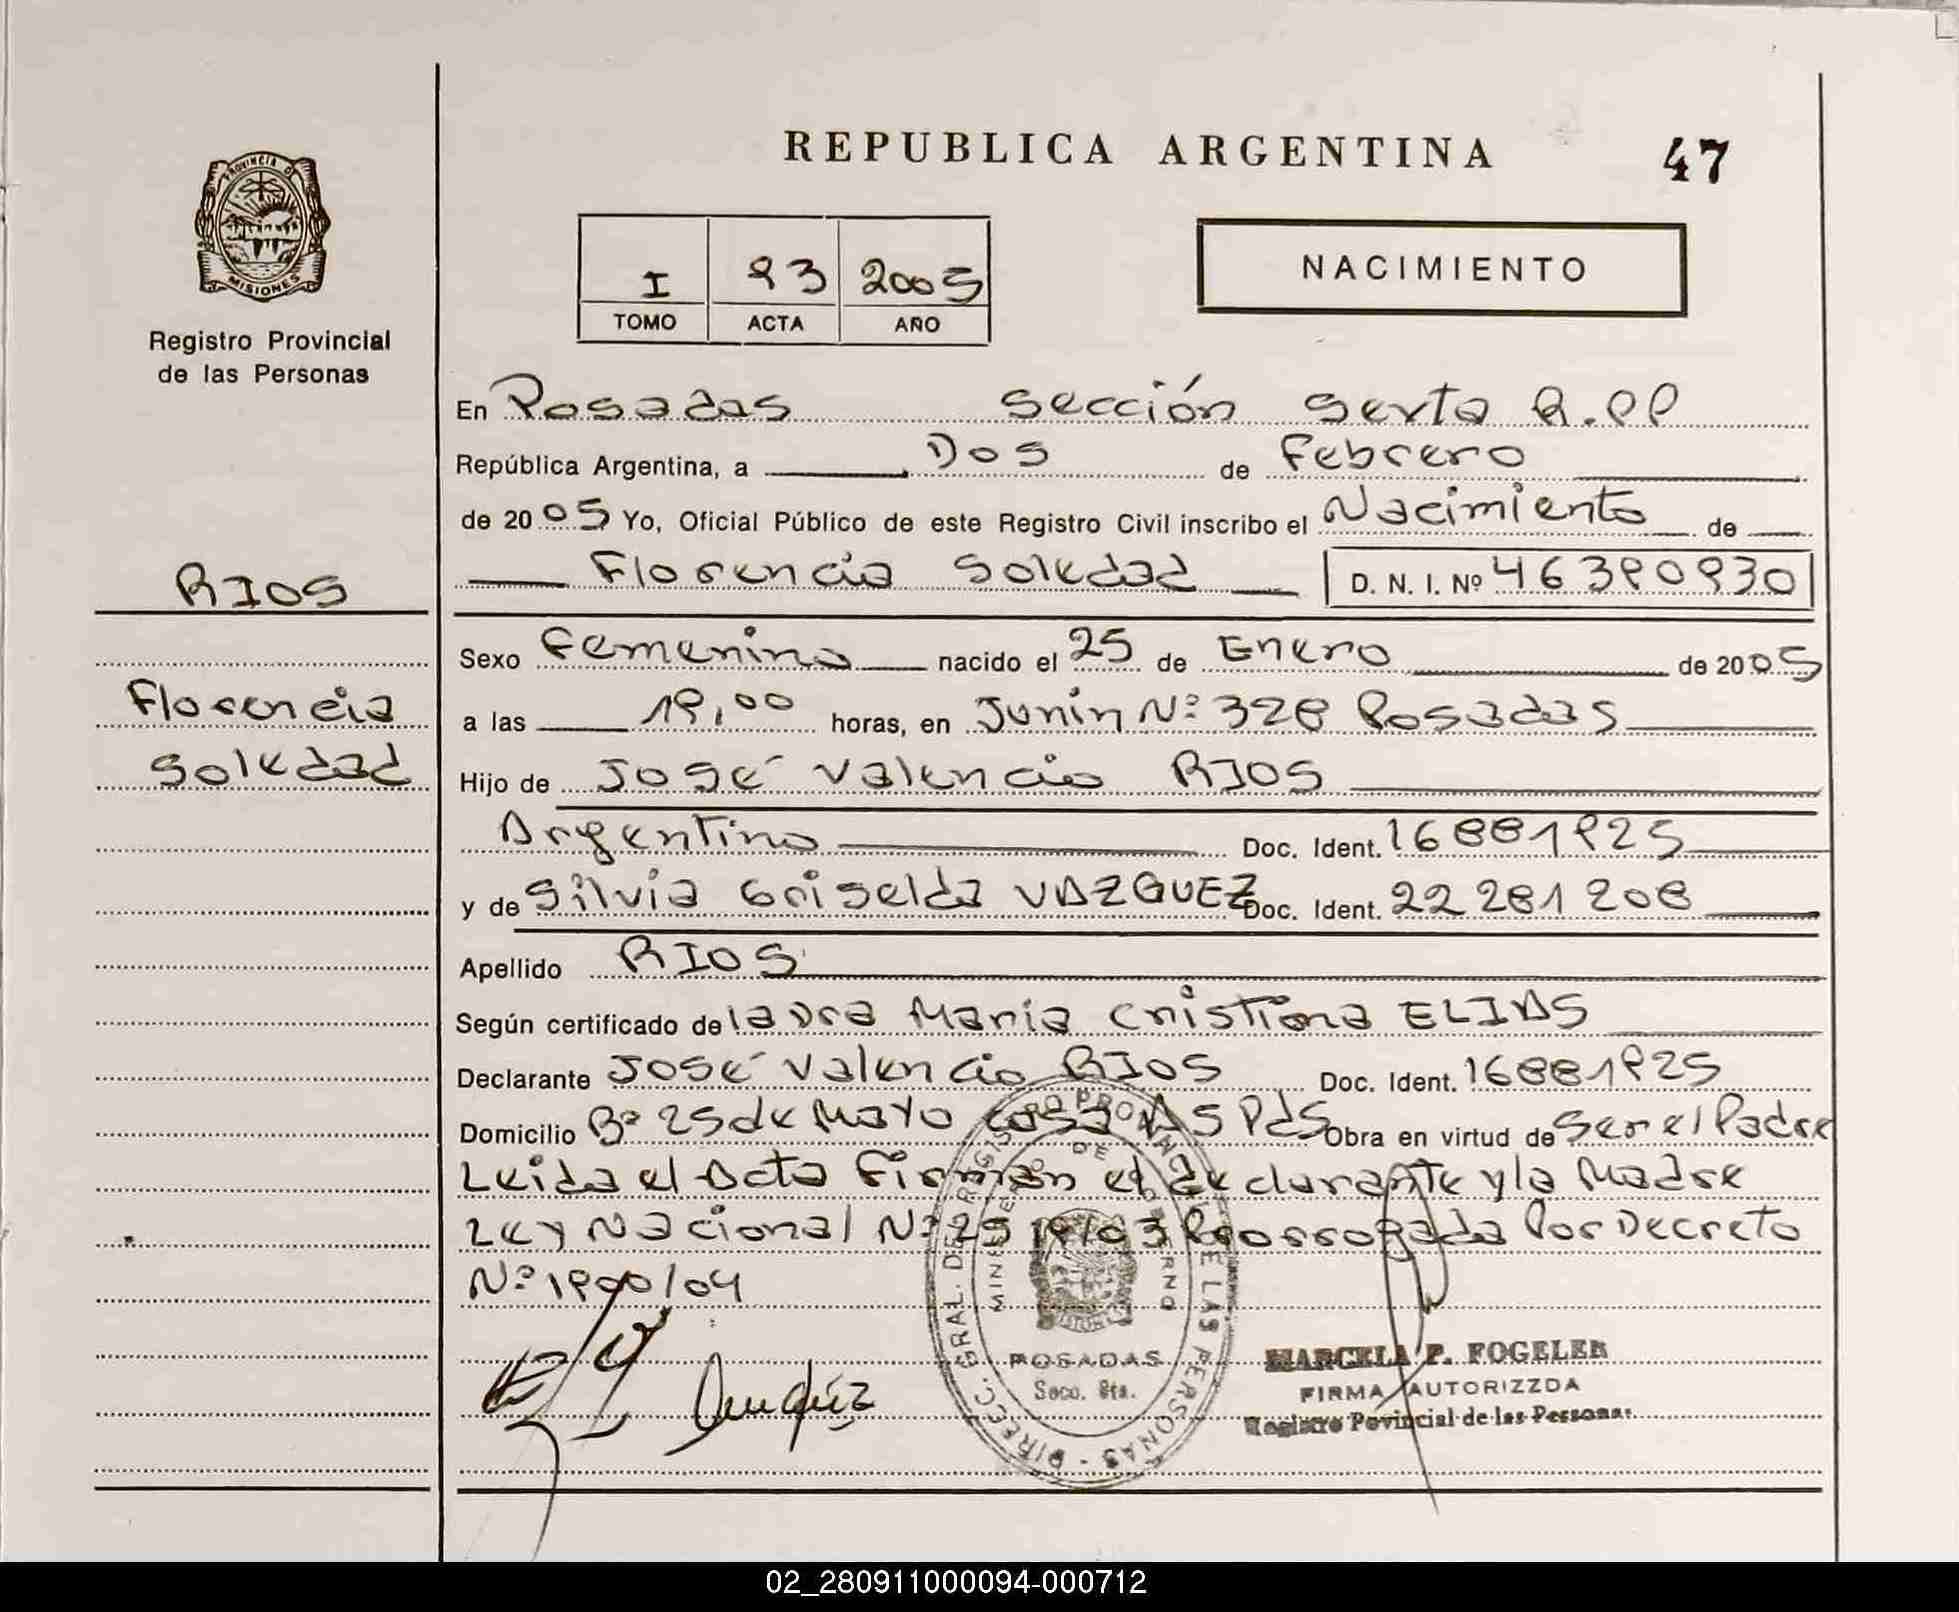 REPUBLICA ARGENTINA
47
PROVINCIA DE
MISIONES
Registro Provincial
de las Personas
I 93 2005
TOMO ACTA AÑO
NACIMIENTO
En Posadas Sección Sexta R.PP
República Argentina, a Dos de Febrero
de 2005 Yo, Oficial Público de este Registro Civil inscribo el Nacimiento de
Florencia Soledad D. N. I. Nº 46390930
RIOS
Florencia
Soledad
Sexo Femenino nacido el 25 de Enero de 2005
a las 19,00 horas, en Junín Nº 328 Posadas
Hijo de José Valencio RIOS
Argentino Doc. Ident. 16881925
y de Silvia Griselda VAZQUEZ Doc. Ident. 22281208
Apellido RIOS
Según certificado de la Dra María Cristina ELIAS
Declarante José Valencio RIOS Doc. Ident. 16881925
Domicilio Bº 25 de Mayo Casa Pds Obra en virtud de Ser el Padre
Leida el Acta Firman el declarante y la Madre
Ley Nacional Nº Prorrogada Por Decreto
Nº 1900/04
DIRECC. GRAL. DEL REGISTRO PROVINCIAL DE LAS PERSONAS
MINISTERIO DE GOBIERNO
POSADAS
Secc. 6ta.
MARCELA P. FOGELER
FIRMA AUTORIZZDA
Registro Povincial de las Personas
02_280911000094-000712